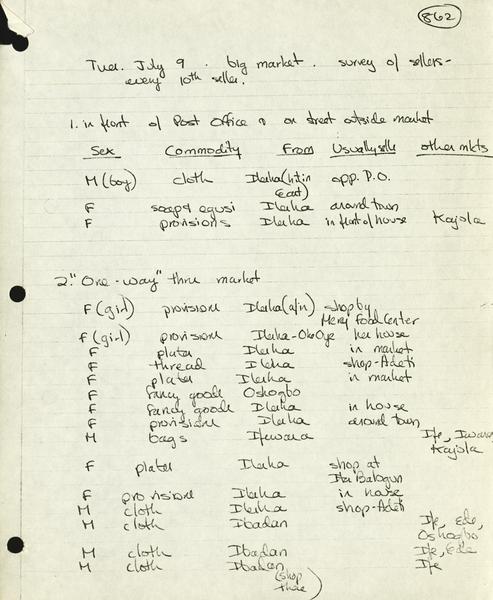 862
Tue. July 9. big market. survey of sellers-
every 10th seller.
1. in front of Post Office & on street outside market
Sex Commodity From Usually sells other mkts
M (boy) cloth Ilesha ( in opp. P.O.
East)
F soaps egusi Ilesha around town
F provisions Ilesha in front of house Kajola
2. "One-way" thru market
F (girl) provisions Ilesha shop by
Mercy Food Center
F (girl) provisions Ilesha-Oke Oye her house
F plates Ilesha in market
F thread Ilesha shop-Adeti
F plates Ilesha in market
F fancy goods Oshogbo
F fancy goods Ilesha in house
F provisions Ilesha around town
M bags Ifewara Ife, Iwara,
Kajola
F plates Ilesha shop at
Ita Balogun
F provisions Ilesha in house
M cloth Ilesha shop-Adeti
M cloth Ibadan Ife, Ede,
Oshogbo
M cloth Ibadan Ife, Ede
M cloth Ibadan Ife
(shop
there)